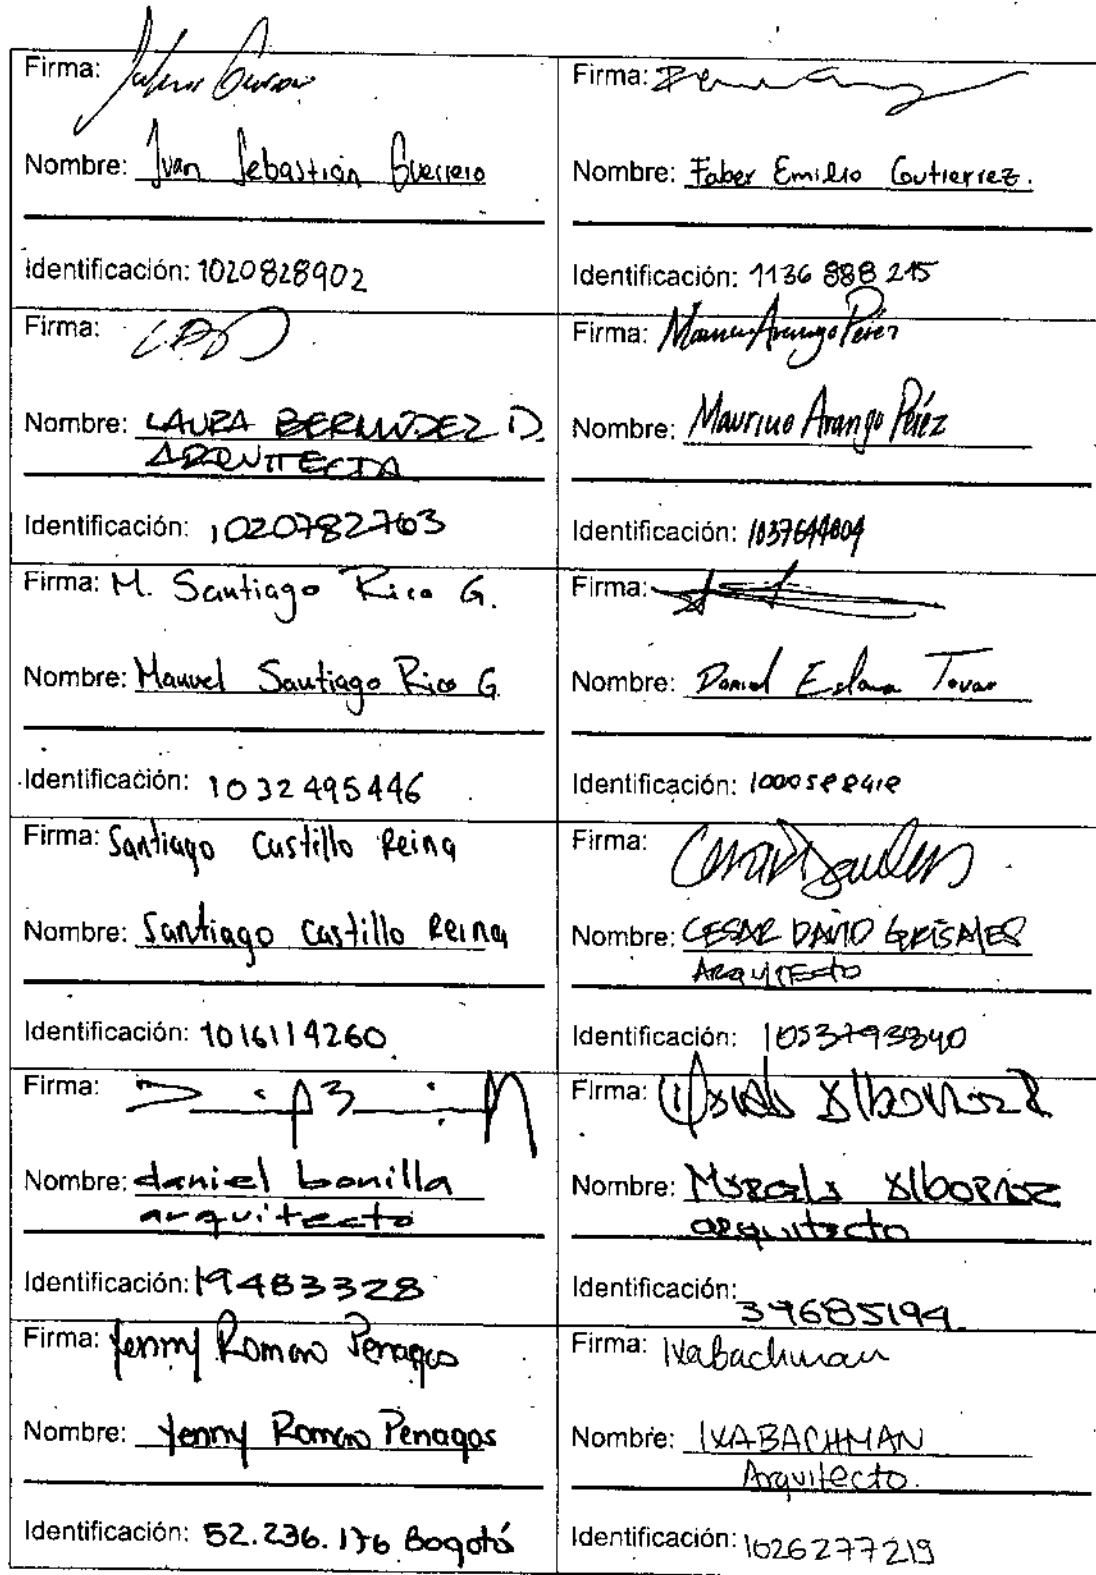 Firma:
Nombre: Ivan Sebastián Guerrero
Identificación: 1020828902
Firma:
Nombre: Faber Emilio Gutierrez.
Identificación: 1136 888 215
Firma: LBD
Nombre: LAURA BERMÚDEZ D.
ARQUITECTA
Identificación: 1020782763
Firma: Arango Pérez
Nombre: Mauricio Arango Pérez
Identificación:
Firma: M. Santiago Rico G.
Nombre: Manuel Santiago Rico G.
Identificación: 1032495446
Firma:
Nombre: Daniel Eslava Tovar
Identificación:
Firma: Santiago Castillo Reina
Nombre: Santiago Castillo Reina
Identificación: 1016114260
Firma:
Nombre: CESAR DAVID GRISALES
ARQUITECTO
Identificación: 1053793840
Firma:
Nombre: daniel bonilla
arquitecto
Identificación: 19483328
Firma: Marcela Albornoz
Nombre: Marcela Albornoz
arquitecto
Identificación: 39685194
Firma: Yenny Romero Penagos
Nombre: Yenny Romero Penagos
Identificación: 52.236.176 Bogotá
Firma: IxaBachman
Nombre: IXABACHMAN
Arquitecto.
Identificación: 1026277219